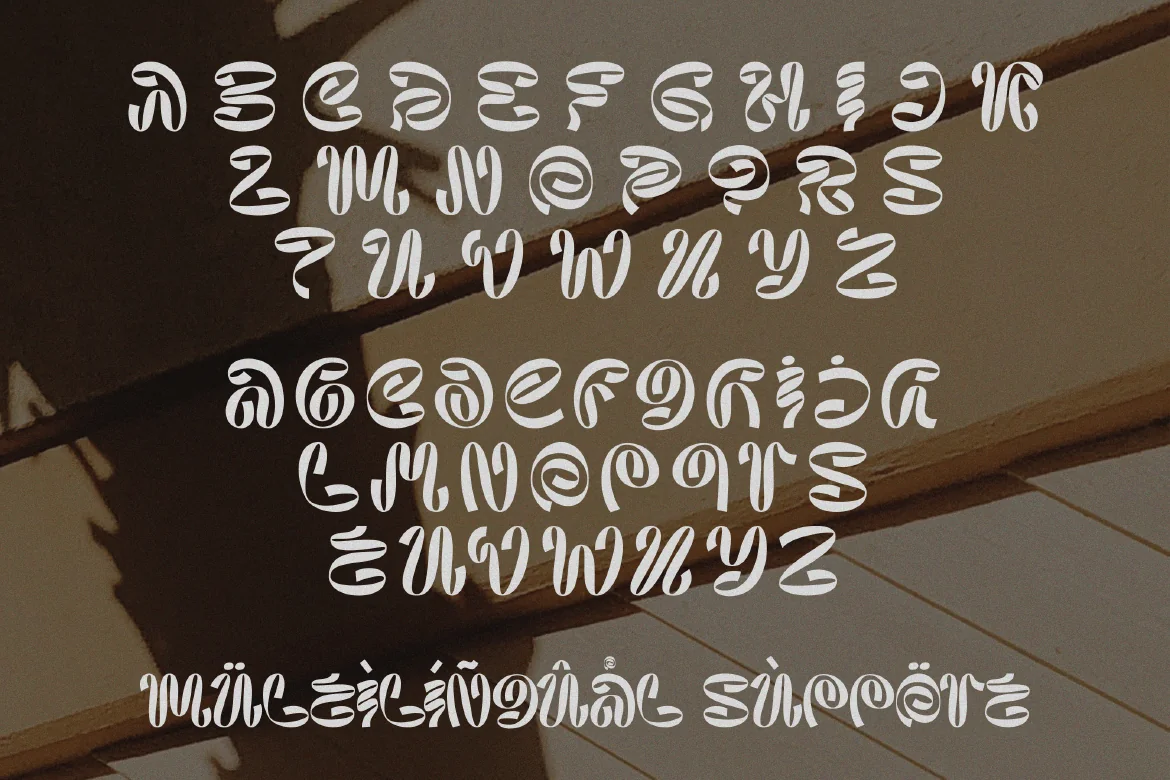 A B C D E F G H I J K
L M N O P Q R S
T U V W X Y Z
a b c d e f g h i j k
l m n o p q r s
t u v w x y z
mültìlíñgûål sùppört